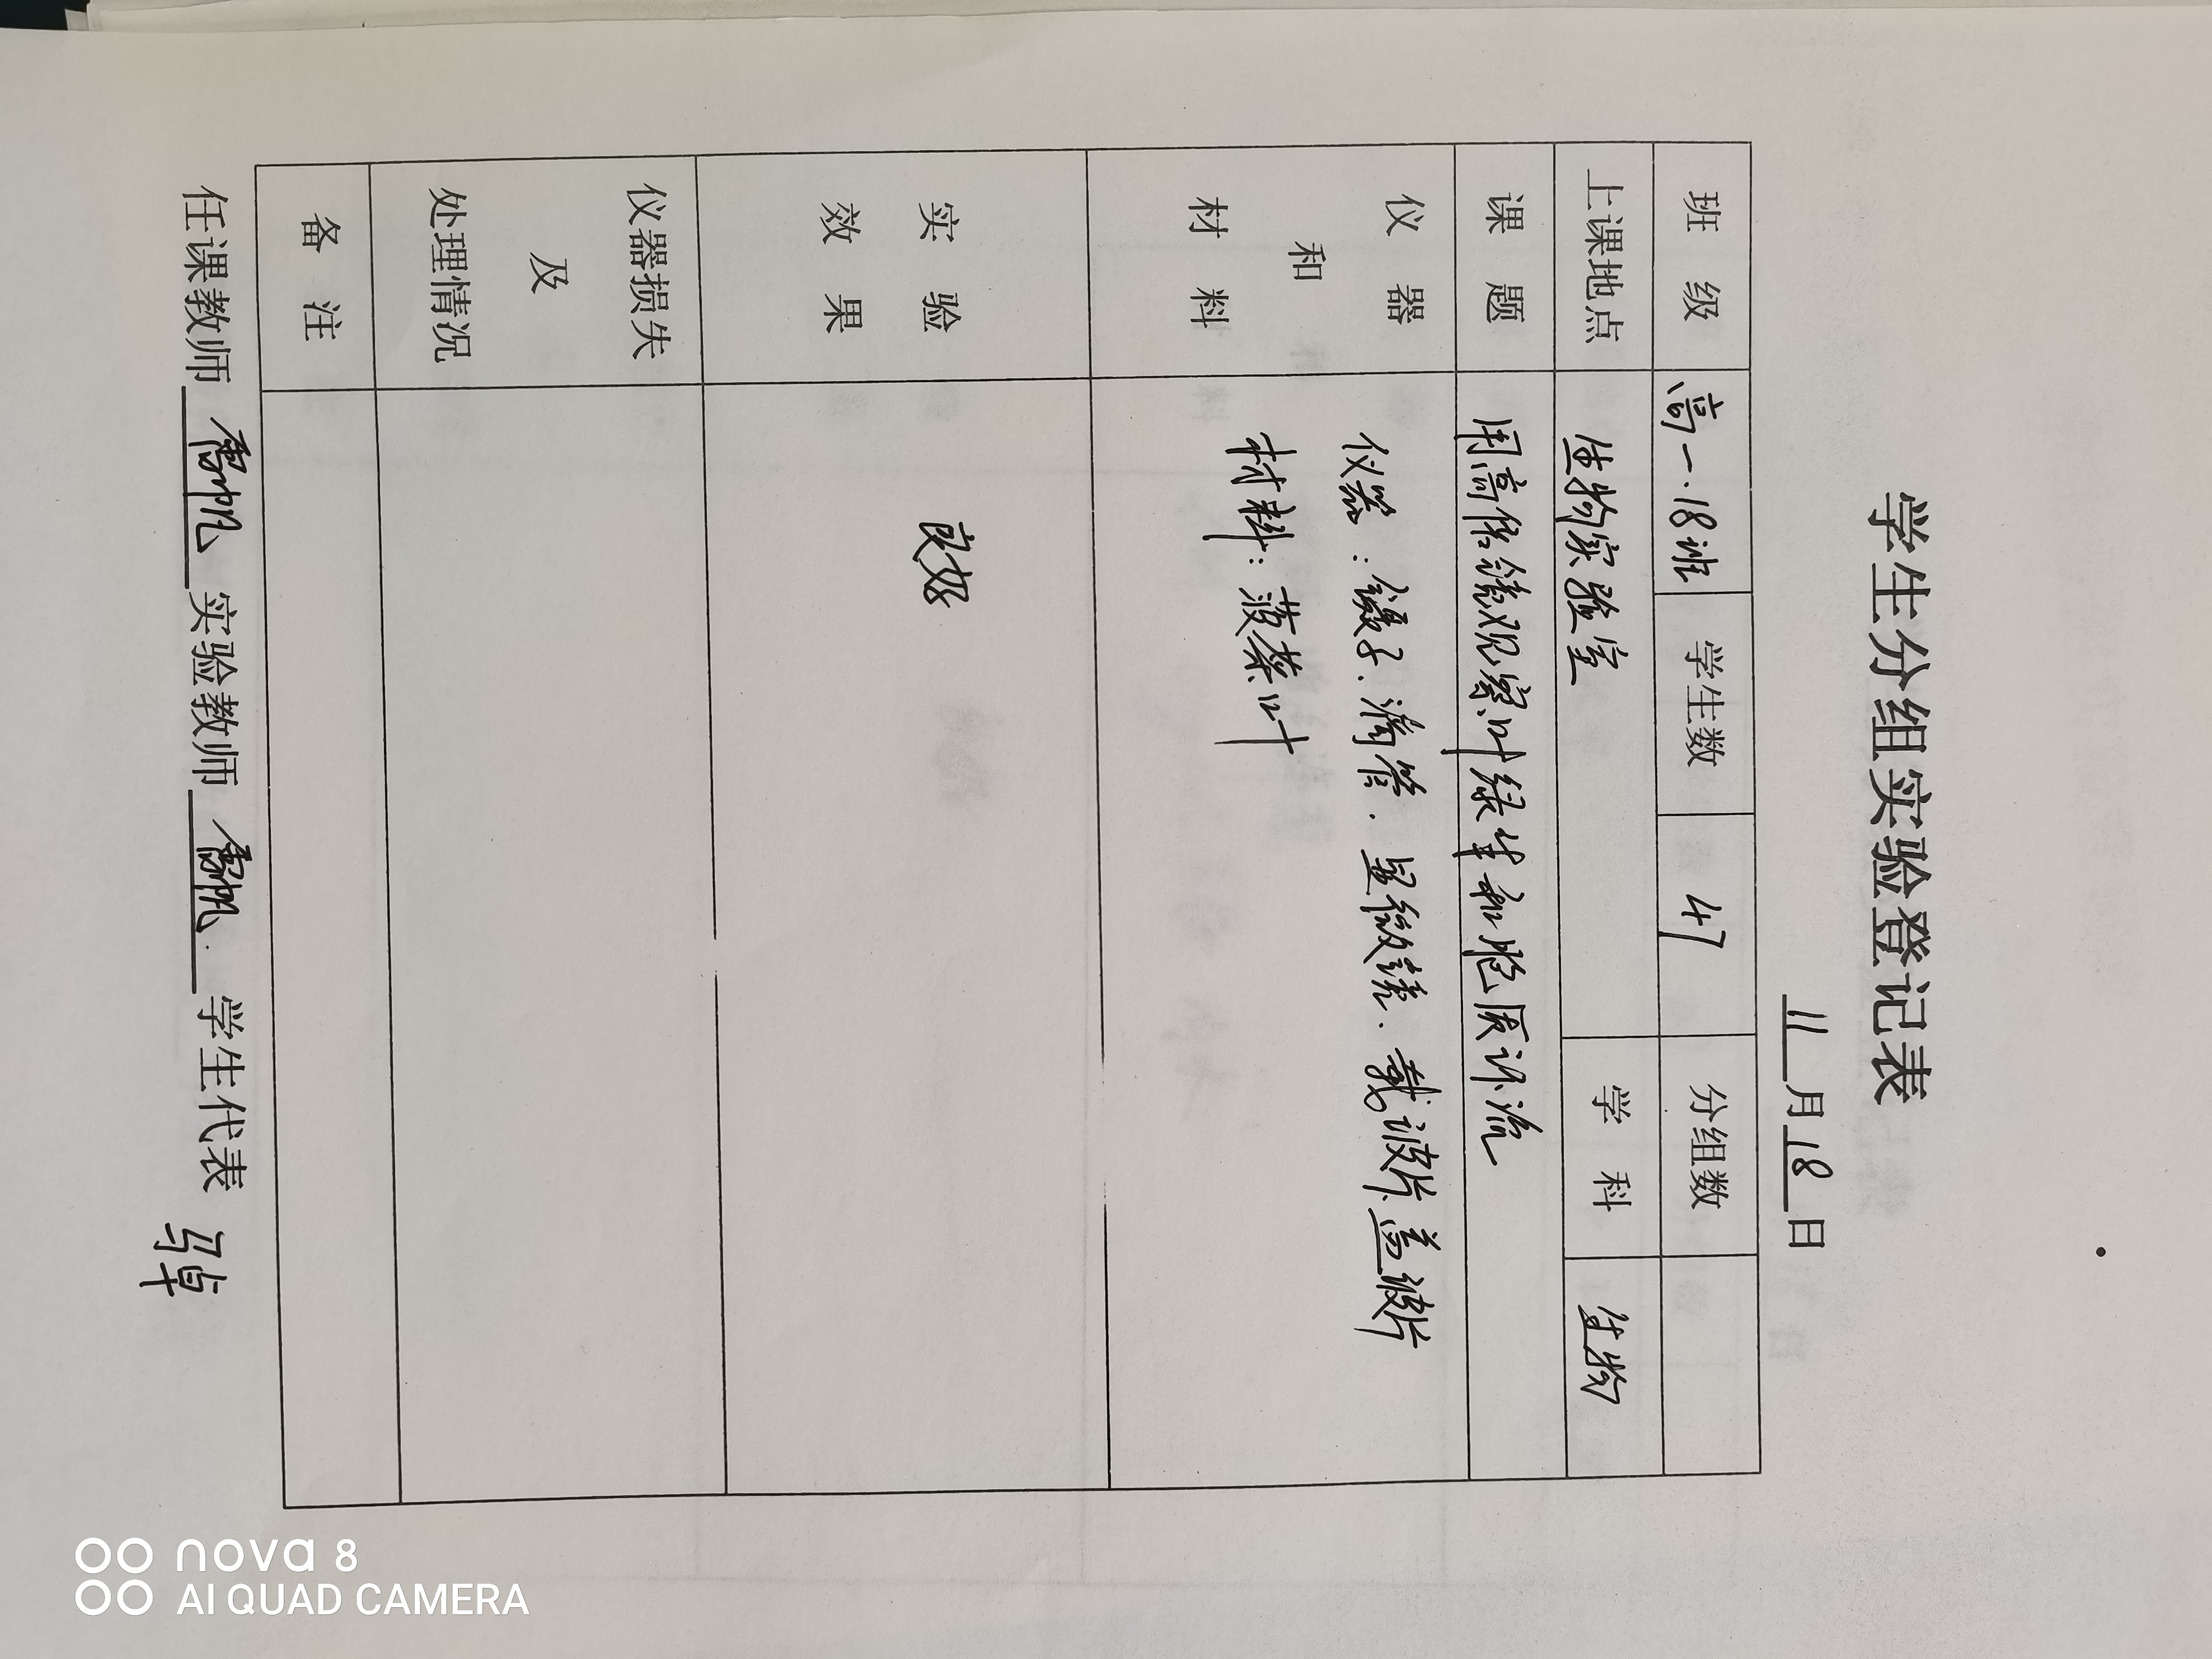 学生分组实验登记表
11月18日
班级 高一.18班 学生数 47 分组数
上课地点 生物实验室 学科 生物
课题 用高倍镜观察叶绿体和胞质环流
仪器和材料 仪器：镊子、滴管、显微镜、载玻片、盖玻片
材料：菠菜叶
实验效果 良好
仪器损失及处理情况
备注
任课教师 实验教师 学生代表 马卓
nova 8
AI QUAD CAMERA